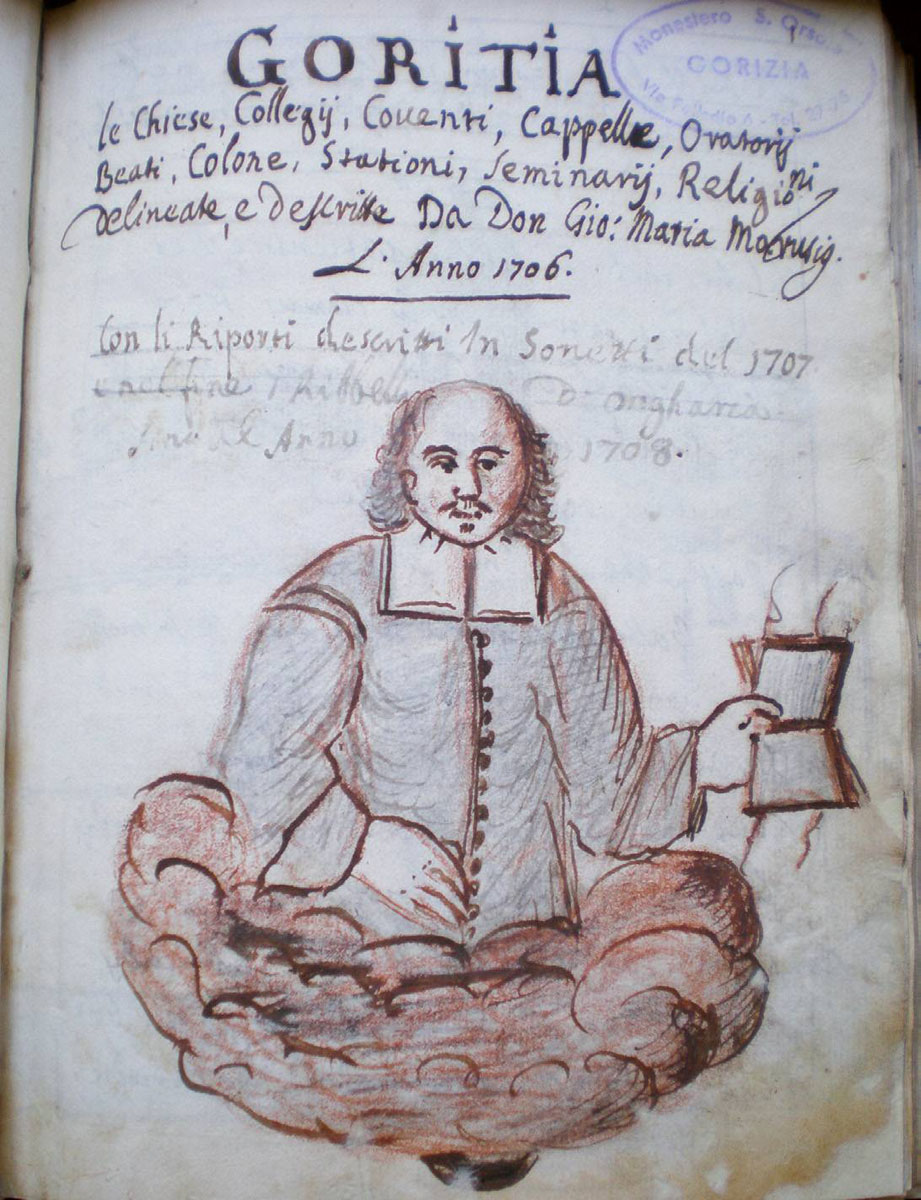 GORITIA
le Chiese, Collegij, Couenti, Cappelle, Oratorij
Beati, Colone, Stationi, Seminarij, Religioni
delineate, e descritte Da Don Gio: Maria Marusig.
L'Anno 1706.
Con li Riporti descritti In Sonetti del 1707
e nel fine D'ongharia
sino al Anno 1708.
Monastero S. Orsola
GORIZIA
Via - Tel.